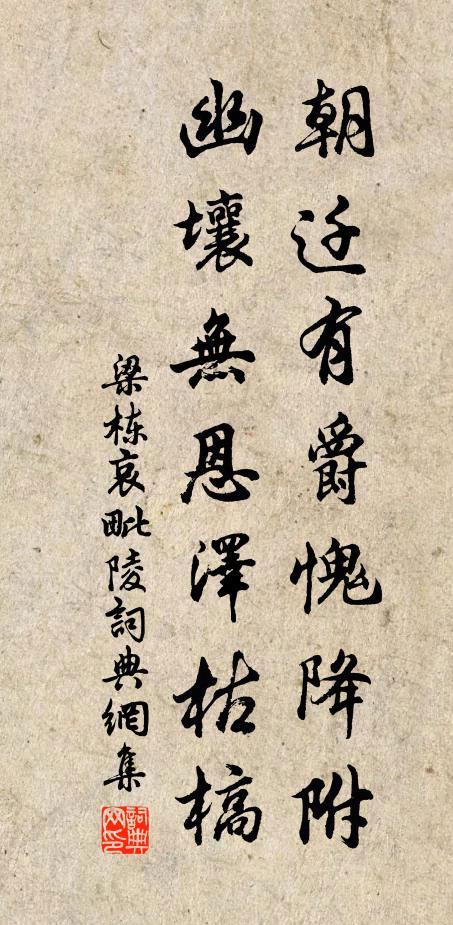 朝廷有爵愧降附
幽壤無恩澤枯槁
梁栋哀毗陵詞典網集
詞典网印